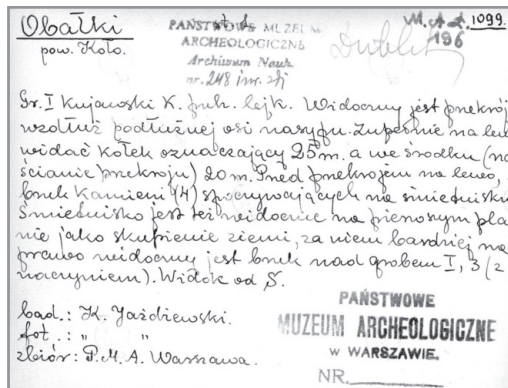 Obałki
pow. Koło.
PAŃSTWOWE MUZEUM
ARCHEOLOGICZNE
Archiwum Nauk
nr. 248 inw. zdj
M.A.Ł. 1099.
196
Dublet
Gr. I Kujawski K. puh. lejk. Widoczny jest przekrój
wzdłuż podłużnej osi nasypu. Zupełnie na lewo
widać kołek oznaczający 25 m. a we środku (na
ścianie przekroju) 20 m. Przed przekrojem na lewo,
bruk kamieni (4) spoczywających na śmietnisku
Śmietnisko jest też widoczne na pierwszym pla
nie jako skupienie ziemi, za niem bardziej na
prawo widoczny jest bruk nad grobem I, 3 (z
naczyniem). Widok od S.
bad.: K. Jażdżewski.
fot.: " "
zbiór: P.M.A. Warszawa.
PAŃSTWOWE
MUZEUM ARCHEOLOGICZNE
W WARSZAWIE.
NR.